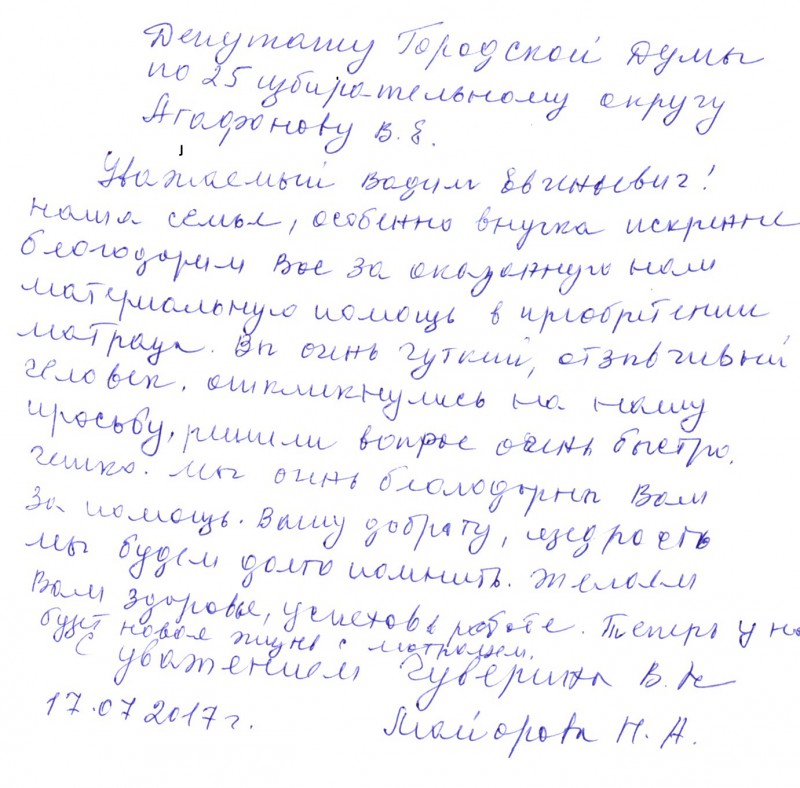 Депутату Городской Думы
по 25 избирательному округу
Агафонову В.Е.
Уважаемый Вадим Евгеньевич!
наша семья, особенно внучка искренне
благодарим Вас за оказанную нам
материальную помощь в приобретении
матраца. Вы очень чуткий, отзывчивый
человек. откликнулись на нашу
просьбу, решили вопрос очень быстро,
четко. Мы очень благодарны Вам
за помощь. Вашу доброту, щедрость
мы будем долго помнить. Желаем
Вам здоровье, успехов в работе. Теперь у на
будет новая жизнь с матрацем.
С уважением Чуверина В.К
17.07 2017г. Майорова Н.А.